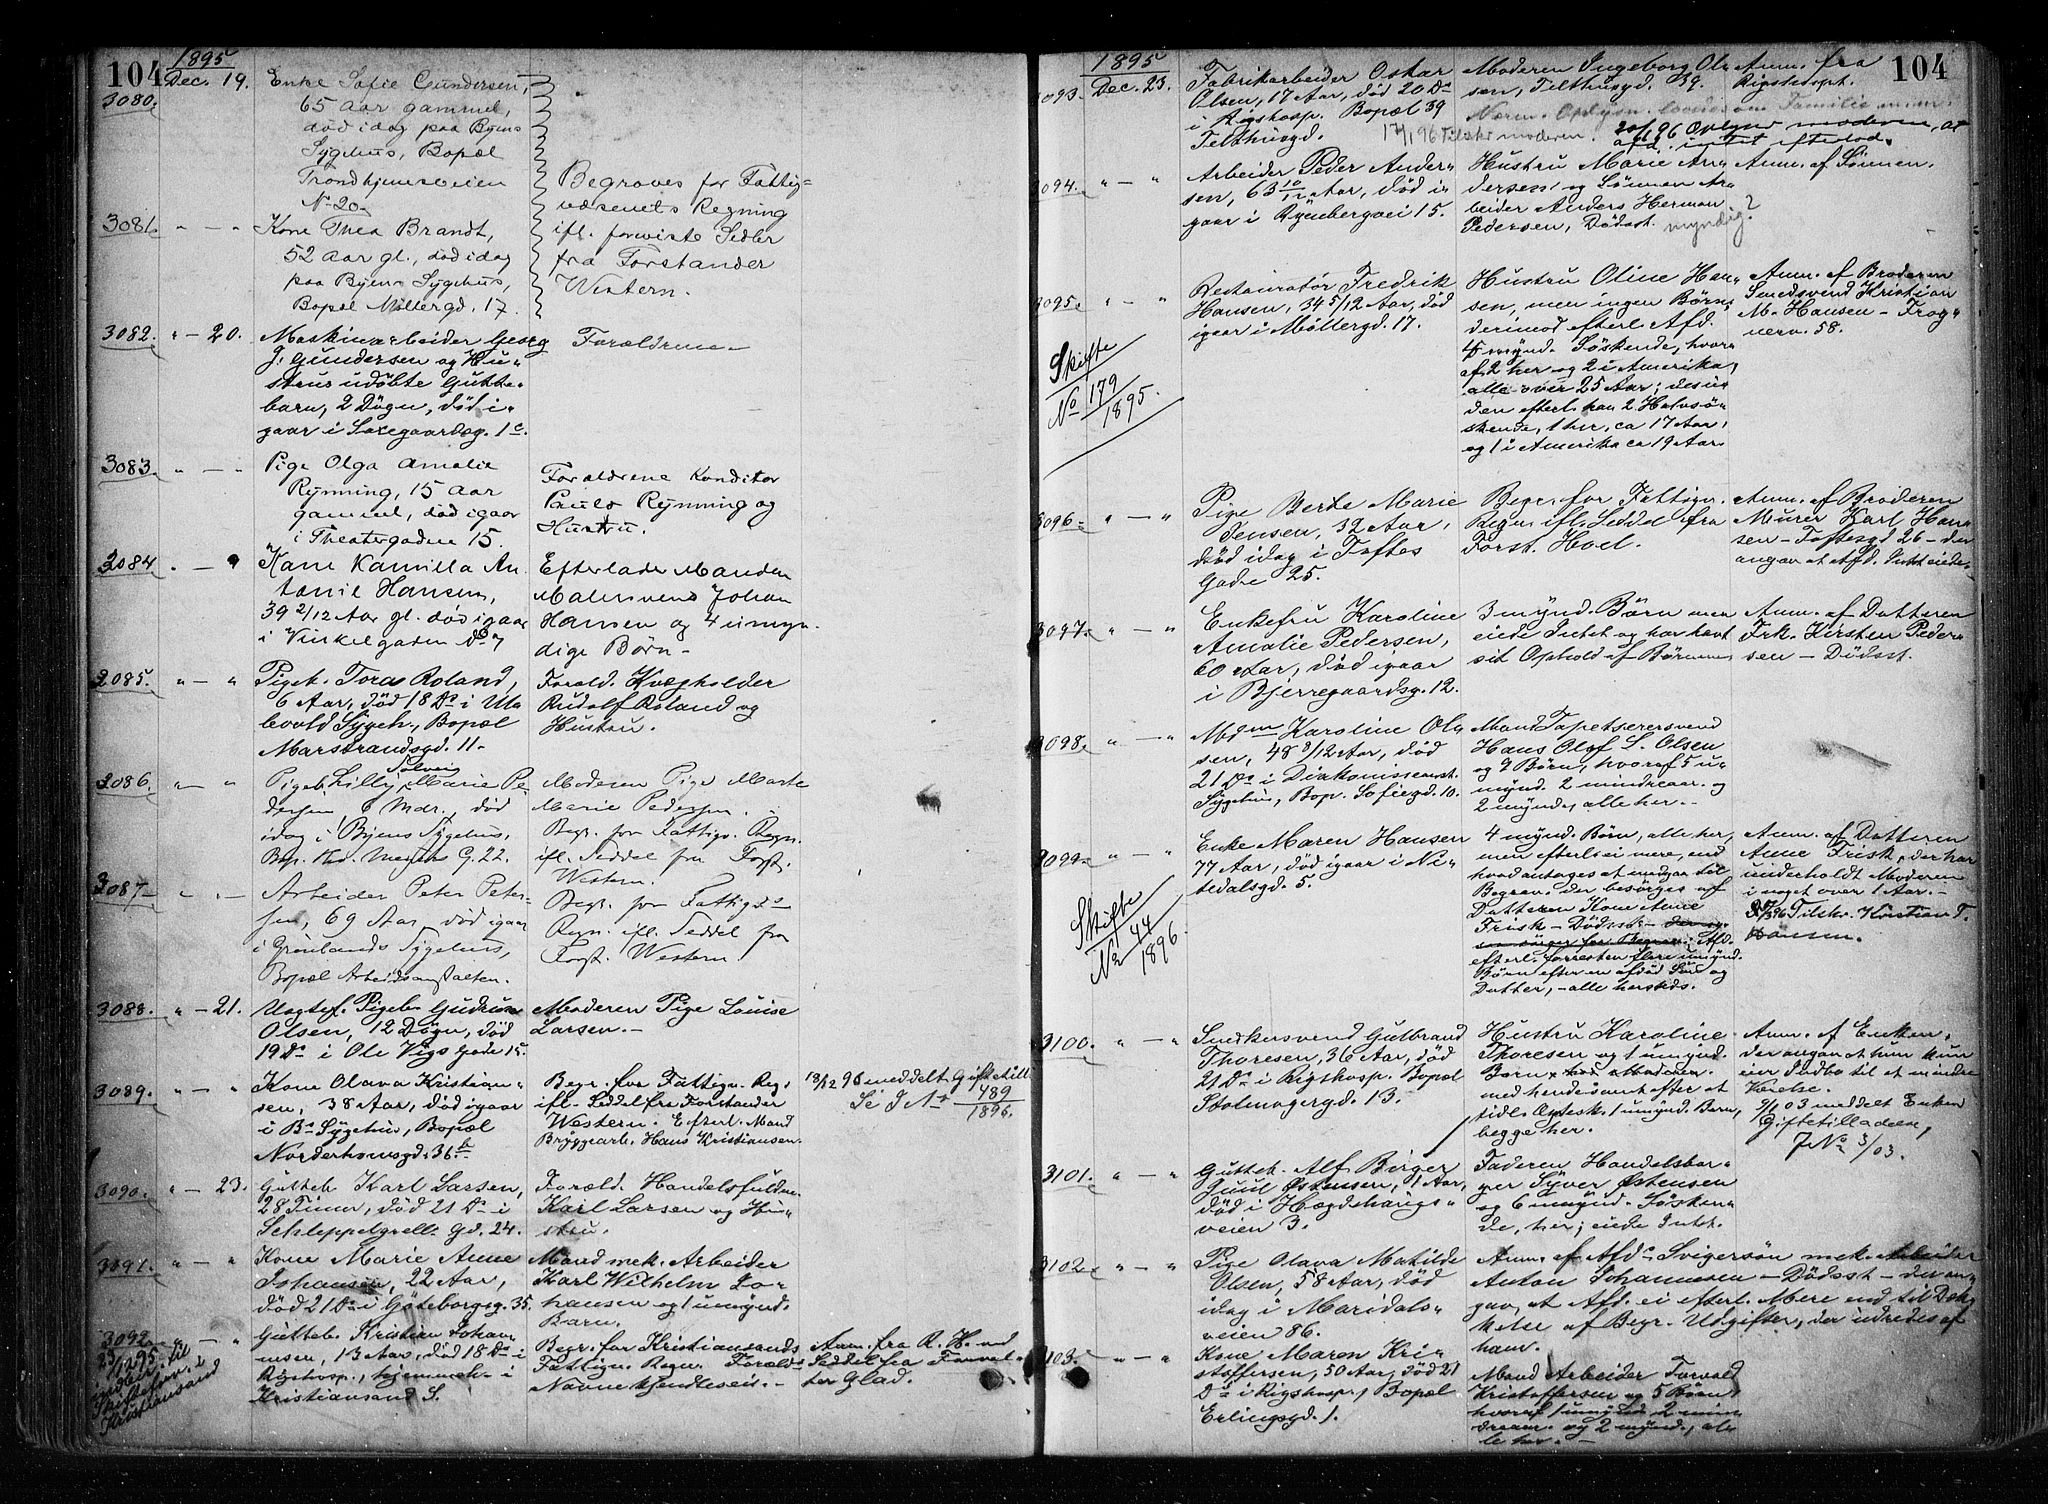 104
1895
Dec. 19.
3080.
Enke Sofie Gundersen,
65 Aar gammel,
död idag paa Byens
Sygehus, Bopæl
Trondhjemsveien
No 20.
3081. " — "
Kone Thea Brandt,
52 Aar gl., död idag
paa Byens Sygehus,
Bopæl Möllergd. 17.
Begraves for Fattig=
væsenets Regning
ifl. foreviste Sedler
fra Forstander
Western.
3082. " - 20.
Maskinarbeider Georg
J. Gundersen og Hu-
strus udöbte Gutte-
barn, 2 Dögn, död i-
gaar i Saxegaardsg. 1c.
Forældrene.
3083. " — "
Pige Olga Amalie
Rynning, 15 Aar
gammel, död igaar
i Theatergaden 15.
Forældrene Konditor
Pauls Rynning og
Hustru.
3084 " — "
Kone Kamilla An
tonie Hansen,
39 2/12 Aar gl. död igaar
i Vinkelgaden
Efterlader Manden
Malersvend Johan
Hansen og 4 umyn-
dige Börn -
3085. " — "
Pigeb. Toras Roland,
6 Aar, död 18 Ds i Ul-
levold Sygeh., Bopæl
Marstrandsgd. 11.
Foræld. Kvægholder
Rudolf Roland og
Hustru.
3086. " — "
Pigeb. Lilly Solveig Marie Pe-
dersen 6 Mdr., död
idag i Byens Sygehus,
Bop. Chr. Meyers G. 22.
Moderen Pige Marte
Marie Pedersen.
Begr. for Fattigv. Regn.
ifl. Seddel fra Forst.
Western.
3087 " — "
Arbeider Peter Peter-
sen, 69 Aar, död igaar
i Grönlands Sygehus,
Bopæl Arbeidsanstalten.
Begr. for Fattigvs
Regn. ifl. Seddel fra
Forst. Western.
3088. " - 21.
Uægtef. Pigeb. Gudrun
Olsen, 12 Dögn, död
19 Ds i Ole Vigs Gade 15.
Moderen Pige Louise
Larsen. -
3089. " — "
Kone Olava Kristian-
sen, 38 Aar, död igaar
i Bs Sygehus, Bopæl
Norderhovsgd. 36 b.
Begr. for Fattigv. Reg.
ifl. Seddel fra Forstander
Western. Efterl. Mand
Bryggearb. Hans Kristiansen.
18/12 96 meddelt Giftetill
Se J No 489/1896.
3090. " - 23.
Gutteb. Karl Larsen,
28 Timer, död 21 Ds i
Schleppelgrells Gd. 24.
Foræld. Handelsfuldm.
Karl Larsen og Hu-
stru.
3091. " — "
Kone Marie Anne
Johansen, 22 Aar,
död 21 Ds i Göteborgsg. 35.
Mand mek. Arbeider
Karl Wilhelm Jo-
hansen og 1 umynd.
Barn.
3092. " — "
Gutteb. Kristian Johan-
nesen, 13 Aar, död 18 Ds i
Rigshosp., hjemmeh. i
Kristiansand S.
Begr. for Kristiansands
Fattigv. Regn. Foræld.
Navne ukjendte sei. -
Anm. fra R. H. ved
Seddel fra Forval-
ter Glad.
23/12 95
indber. til
Skifteforv. i
Kristiansand
104
1895
3093. Dec. 23.
Fabrikarbeider Oskar
Olsen, 17 Aar, död 20 Ds
i Rigshosp. Bopæl 39
Telthusgd.
Moderen Ingeborg Ol-
sen, Telthusgd. 39.
Anm. fra
Rigshospt.
Nærm. Oplysn.
17/1 96 Tilskr. moderen.
20/1 96 Oplyser moderen, at
afd. intet efterlod.
3094. " — "
Arbeider Peder Ander-
sen, 63 10/12 Aar, död i-
gaar i Rynbergvei 15.
Hustru Marie An-
dersen og Sönnen Ar-
beider Anders Herman
Pedersen, Dödsst. myndig?
Anm. af Sönnen.
3095. " — "
Restauratör Fredrik
Hansen, 34 5/12 Aar, död
igaar i Möllergd. 17.
Skifte
No 179/1895.
Hustru Oline Han-
sen, men ingen Börn;
derimod efterl. Afd.
4 mynd. Söskende, hvor-
af 2 her og 2 i Amerika,
alle over 25 Aar; desu-
den efterl. han 2 Halvsö-
skende, 1 her, ca 17 Aar,
og 1 i Amerika ca 19 Aar.
Anm. af Broderen
Smedsvend Kristian
M. Hansen - Frog-
nerv. 58.
3096. " — "
Pige Berte Marie
Jensen, 32 Aar,
död idag i Toftes
Gade 25.
Begr. for Fattigv.
Regn. ifl. Seddel fra
Forst. Hoel.
Anm. af Broderen
Murer Karl Han-
sen - Toftesgd 26 - der
angav at Afd. Intet eiede.
3097. " — "
Enkefru Karoline
Amalie Pedersen,
60 Aar, död igaar
i Bjerregaardsg. 12.
3 mynd. Börn men
eiede Intet og har havt
sit Ophold af Börnene
Anm. af Datteren
Frk. Kirsten Peder-
sen - Dödsst.
3098. " — "
Mdm Karoline Ol-
sen, 48 8/12 Aar, död
21 Ds i Diakonisseanst.
Sygehus, Bop. Sofiegd. 10.
Mand Tapetserersvend
Hans Olaf S. Olsen
og 9 Börn, hvoraf 5 u-
mynd. 2 mindreaar. og
2 mynd., alle her. -
3099. " — "
Enke Maren Hansen
77 Aar, död igaar i Ni-
tedalsgd. 5.
Skifte
No 44/1896.
4 mynd. Börn, alle her,
men efterl. ei mere, end
hvad antages at medgaa til
Begrav. der besörges af
Datteren Kone Anne
Frisk - Dödsst.
Afd.
efterl. forresten flere umynd.
Börn efter en afdöd Sön og
Datter, - alle hersteds.
Anm. af Datteren
Anne Frisk, der har
underholdt Moderen
i noget over 1 Aar. -
Tilskr. Kristian T.
Hansen.
3100. " — "
Snedkersvend Gulbrand
Thoresen, 36 Aar, död
21 Ds i Rigshosp. Bopæl
Stolmagergd. 13.
Hustru Karoline
Thoresen og 1 umynd.
Barn
med hende samt efter et
tidl. Ægtesk. 1 umynd. Barn,
begge her.
Anm. af Enken,
der angav at hun kun
eier Indbo til et mindre
Værelse.
9/1 03 meddelt Enken
Giftetilladelse,
J No 3/03.
3101. " — "
Gutteb. Alf Birger
Juul Östensen, 1 Aar,
död i Hægdehaugs-
veien 3.
Faderen Handelsbor-
ger Syver Östensen
og 6 umynd. Sösken-
de, her; eiede Intet.
3102. " — "
Pige Olava Matilde
Olsen, 58 Aar, död
idag i Maridals-
veien 86.
Anm. af Afds Svigersön mek. Arbeider
Anton Johannesen - Dödsst - der an-
gav, at Afd. ei efterl. Mere end til Dæk-
kelse af Begr. Udgifter, der udredes af
ham.
3103. " — "
Kone Maren Kri-
stoffersen, 50 Aar, död 21
Ds i Rigshosp., Bopæl
Erlingsgd. 1.
Mand Arbeider Torvald
Kristoffersen og 5 Börn,
hvoraf 1 umynd. 2 min-
dreaar. og 2 mynd., al-
le her. -